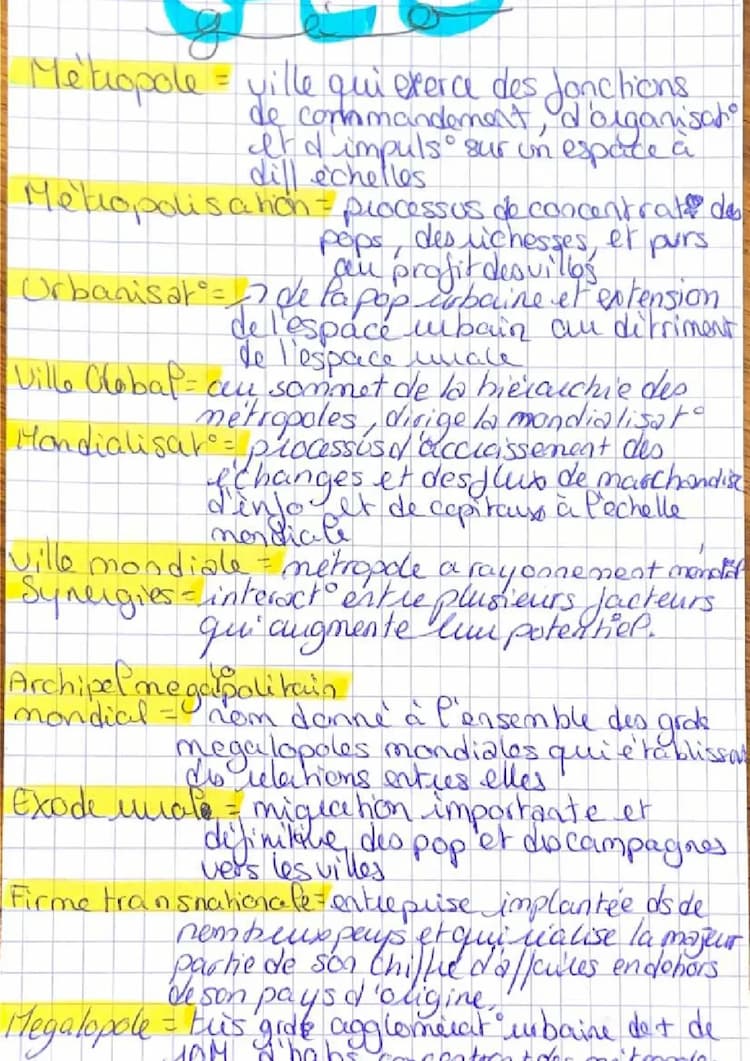 GEO
géo
Métropole = ville qui exerce des fonctions
de commandement, d'organisat°
et d'impuls° sur un espace à
diff échelles
Métropolisation = processus de concentrat° des
pops, des richesses, et pvrs
au profit des villes
Urbanisat° = ↗ de la pop urbaine et extension
de l'espace urbain au détriment
de l'espace rurale
Ville Global = au sommet de la hiérarchie des
métropoles, dirige la mondialisat°
Mondialisat° = processus d'accroissement des
échanges et des flux de marchandise
d'info et de capitaux à l'échelle
mondiale
Ville mondiale = métropole a rayonnement mondial
Synergies = interact° entre plusieurs facteurs
qui augmente leur potentiel.
Archipel megalopolitain
mondial = nom donné à l'ensemble des grds
megalopoles mondiales qui établissent
des relations entres elles
Exode rurale = migration importante et
définitive des pop et des campagnes
vers les villes
Firme transnationale = entreprise implantée ds de
nombreux pays et qui réalise la majeur
partie de son chiffre d'affaires en dehors
de son pays d'origine.
Megalopole = très grde agglomérat° urbaine de + de
10M d'habs